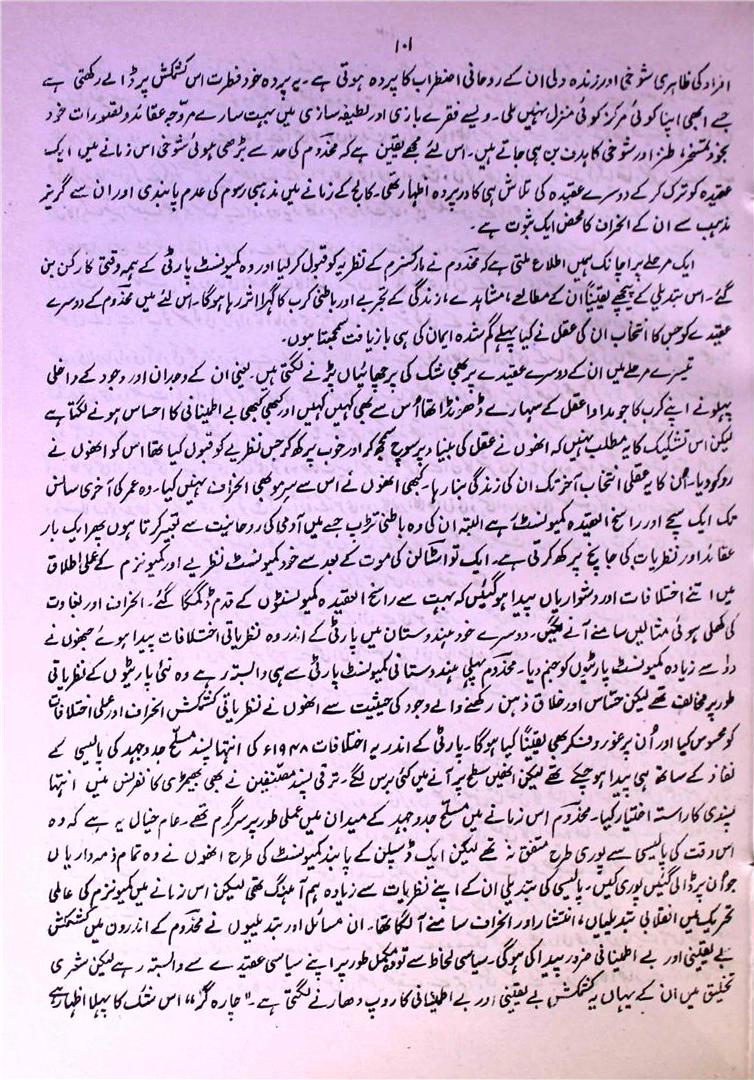 ۱۰۱
افراد کی ظاہری شوخی اور زندہ دلی ان کے روحانی اضطراب کا پردہ ہوتی ہے۔ یہ پردہ خود فطرت اس کشمکش پر ڈالے رکھتی ہے
جسے ابھی اپنا کوئی مرکز کوئی منزل نہیں ملی۔ ویسے فقرے بازی اور لطیفہ سازی میں بہت سارے مروّجہ عقائد و تصورات خود
بخود تمسخر، طنز اور شوخی کا ہدف بن ہی جاتے ہیں۔ اس لئے مجھے یقین ہے کہ مخدوم کی حد سے بڑھی ہوئی شوخی اس زمانے میں ایک
عقیدہ کو ترک کر کے دوسرے عقیدہ کی تلاش ہی کا در پردہ اظہار تھی۔ کالج کے زمانے میں مذہبی رسوم کی عدم پابندی اور ان سے گریز
مذہب سے ان کے انحراف کا محض ایک ثبوت ہے۔
ایک مرحلے پر اچانک ہمیں اطلاع ملتی ہے کہ مخدوم نے مارکسزم کے نظریہ کو قبول کر لیا اور وہ کمیونسٹ پارٹی کے ہمہ وقتی کارکن بن
گئے۔ اس تبدیلی کے پیچھے یقیناً ان کے مطالعے، مشاہدے، زندگی کے تجربے اور باطنی کرب کا گہرا اثر رہا ہوگا۔ اس لئے میں مخدوم کے دوسرے
عقیدے کو جس کا انتخاب ان کی عقل نے کیا پہلے گم شدہ ایمان کی ہی بازیافت سمجھتا ہوں۔
تیسرے مرحلے میں ان کے دوسرے عقیدے پر بھی شک کی پرچھائیاں پڑنے لگتی ہیں۔ یعنی ان کے وجدان اور وجود کے داخلی
پہلو نے اپنے کرب کا جو مداوا عقل کے سہارے ڈھونڈا تھا اُس سے بھی کہیں کہیں اور کبھی کبھی بے اطمینانی کا احساس ہونے لگتا ہے
لیکن اس تشکیک کا یہ مطلب نہیں کہ انھوں نے عقل کی بنیاد پر سوچ سمجھ کر اور خوب پرکھ کر جس نظریے کو قبول کیا تھا اس کو انھوں نے
رد کر دیا۔ اُن کا یہ عقلی انتخاب آخر تک ان کی زندگی بنا رہا۔ کبھی انھوں نے اس سے سرِ مو بھی انحراف نہیں کیا۔ وہ عمر کی آخری سانس
تک ایک سچے اور راسخ العقیدہ کمیونسٹ رہے البتہ ان کی وہ باطنی تڑپ جسے میں آدمی کی روحانیت سے تعبیر کرتا ہوں پھر ایک بار
عقائد اور نظریات کی جانچ پرکھ کرتی ہے۔ ایک تو اسٹالن کی موت کے بعد سے خود کمیونسٹ نظریے اور کمیونزم کے عملی اطلاق
میں اتنے اختلافات اور دشواریاں پیدا ہو گئیں کہ بہت سے راسخ العقیدہ کمیونسٹوں کے قدم ڈگمگا گئے۔ انحراف اور بغاوت
کی کھلی ہوئی مثالیں سامنے آنے لگیں۔ دوسرے خود ہندوستان میں پارٹی کے اندر وہ نظریاتی اختلافات پیدا ہوئے جنھوں نے
دو سے زیادہ کمیونسٹ پارٹیوں کو جنم دیا۔ مخدوم پہلی ہندوستانی کمیونسٹ پارٹی سے ہی وابستہ رہے وہ نئی پارٹیوں کے نظریاتی
طور پر مخالف تھے لیکن حساس اور خلاق ذہن رکھنے والے وجود کی حیثیت سے انھوں نے نظریاتی کشمکش انحراف اور عملی اختلافات
کو محسوس کیا اور اُن پر غور و فکر بھی یقیناً کیا ہوگا۔ پارٹی کے اندر یہ اختلافات ۱۹۴۸ء کی انتہا پسند مسلح جدوجہد کی پالیسی کے
نفاذ کے ساتھ ہی پیدا ہو چکے تھے لیکن انھیں سطح پر آنے میں کئی برس لگے۔ ترقی پسند مصنفین نے بھی بھیمڑی کانفرنس میں انتہا
پسندی کا راستہ اختیار کیا۔ مخدوم اس زمانے میں مسلح جدوجہد کے میدان میں عملی طور پر سرگرم تھے۔ عام خیال یہ ہے کہ وہ
اس وقت کی پالیسی سے پوری طرح متفق نہ تھے لیکن ایک ڈسپلن کے پابند کمیونسٹ کی طرح انھوں نے وہ تمام ذمہ داریاں
جو اُن پر ڈالی گئیں پوری کیں۔ پالیسی کی تبدیلی ان کے اپنے نظریات سے زیادہ ہم آہنگ تھی لیکن اس زمانے میں کمیونزم کی عالمی
تحریک میں انقلابی تبدیلیاں، انتشار اور انحراف سامنے آنے لگا تھا۔ ان مسائل اور تبدیلیوں نے مخدوم کے اندرون میں کشمکش
بے یقینی اور بے اطمینانی ضرور پیدا کی ہوگی۔ سیاسی لحاظ سے تو وہ مکمل طور پر اپنے سیاسی عقیدے سے وابستہ رہے لیکن شعری
تخلیق میں ان کے یہاں یہ کشمکش بے یقینی اور بے اطمینانی کا روپ دھارنے لگتی ہے۔ "چارہ گر" اس شک کا پہلا اظہار ہے